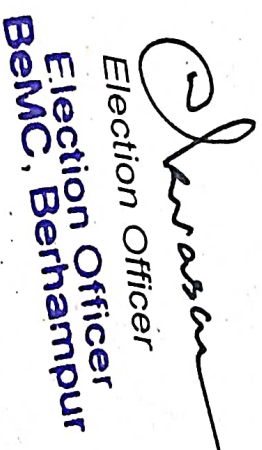 Election Officer
Election Officer
BeMC, Berhampur